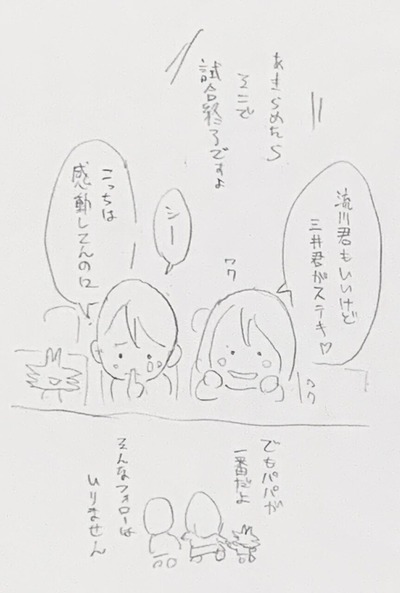 あきらめたら
そこで
試合終了ですよ
流川君もいいけど
三井君がステキ♡
ワク
ワク
シー
こっちは
感動してんのに
でもパパが
一番だよ
そんなフォローは
いりません